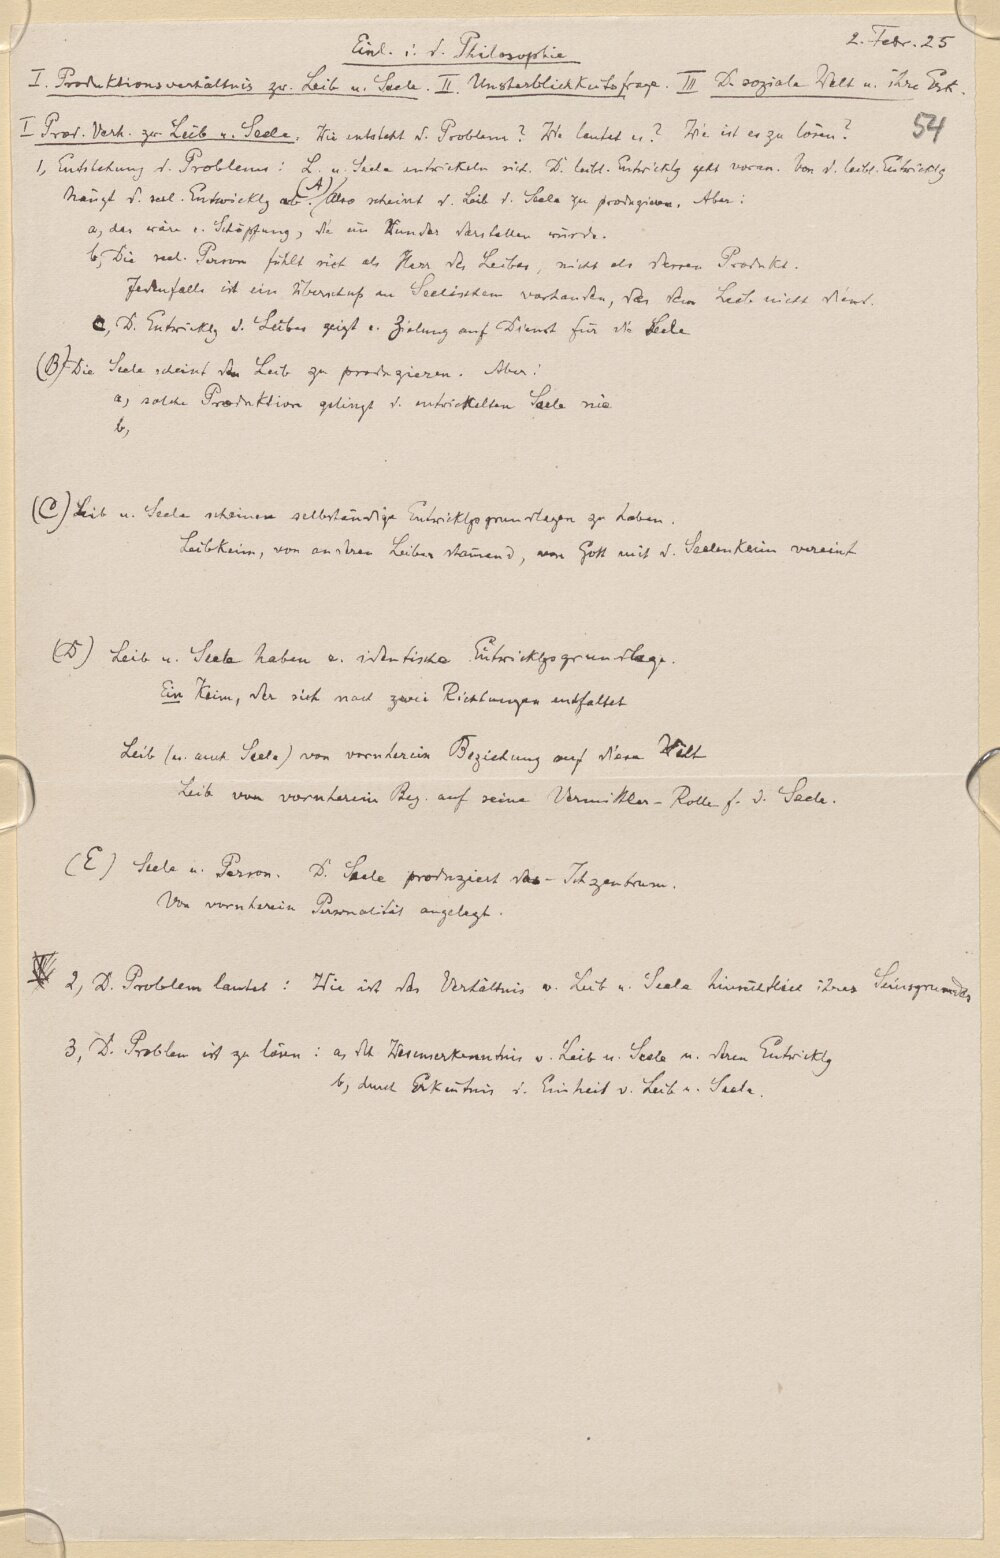 Einl. i. d. Philosophie
2. Febr. 25
I. Produktionsverhältnis zw. Leib u. Seele. II. Unsterblichkeitsfrage. III D. soziale Welt u. ihre Erk.
54
I Prod. Verh. zw. Leib u. Seele. Wie entsteht d. Problem? Wie lautet es? Wie ist es zu lösen?
1, Entstehung d. Problems: L. u. Seele entwickeln sich. D. leibl. Entwicklg geht voran. Von d. leibl. Entwicklg
hängt d. seel. Entwicklg ab. (A) Also scheint d. Leib d. Seele zu produzieren. Aber:
a, das wäre e. Schöpfung, die ein Wunder darstellen würde.
b, Die seel. Person fühlt sich als Herr des Leibes, nicht als dessen Produkt.
Jedenfalls ist ein Überschuß an Seelischem vorhanden, das dem Leib nicht dient.
c, D. Entwicklg d. Leibes zeigt e. Zielung auf Dienst für die Seele
(B) Die Seele scheint den Leib zu produzieren. Aber:
a, solche Produktion gelingt d. entwickelten Seele nie
b,
(C) Leib u. Seele scheinen selbständige Entwicklgsgrundlagen zu haben.
Leibkeim, von anderen Leibern stammend, von Gott mit d. Seelenkeim vereint
(D) Leib u. Seele haben e. identische Entwicklgsgrundlage.
Ein Keim, der sich nach zwei Richtungen entfaltet
Leib (u. auch Seele) von vornherein Beziehung auf diese Welt
Leib von vornherein Bez. auf seine Vermittler-Rolle f. d. Seele.
(E) Seele u. Person. D. Seele produziert das Ichzentrum.
Von vornherein Personalität angelegt.
2, D. Problem lautet: Wie ist das Verhältnis v. Leib u. Seele hinsichtlich ihres Seinsgrundes
3, D. Problem ist zu lösen: a, dch Wesenserkenntnis v. Leib u. Seele u. deren Entwicklg
b, durch Erkentnis d. Einheit v. Leib u. Seele.